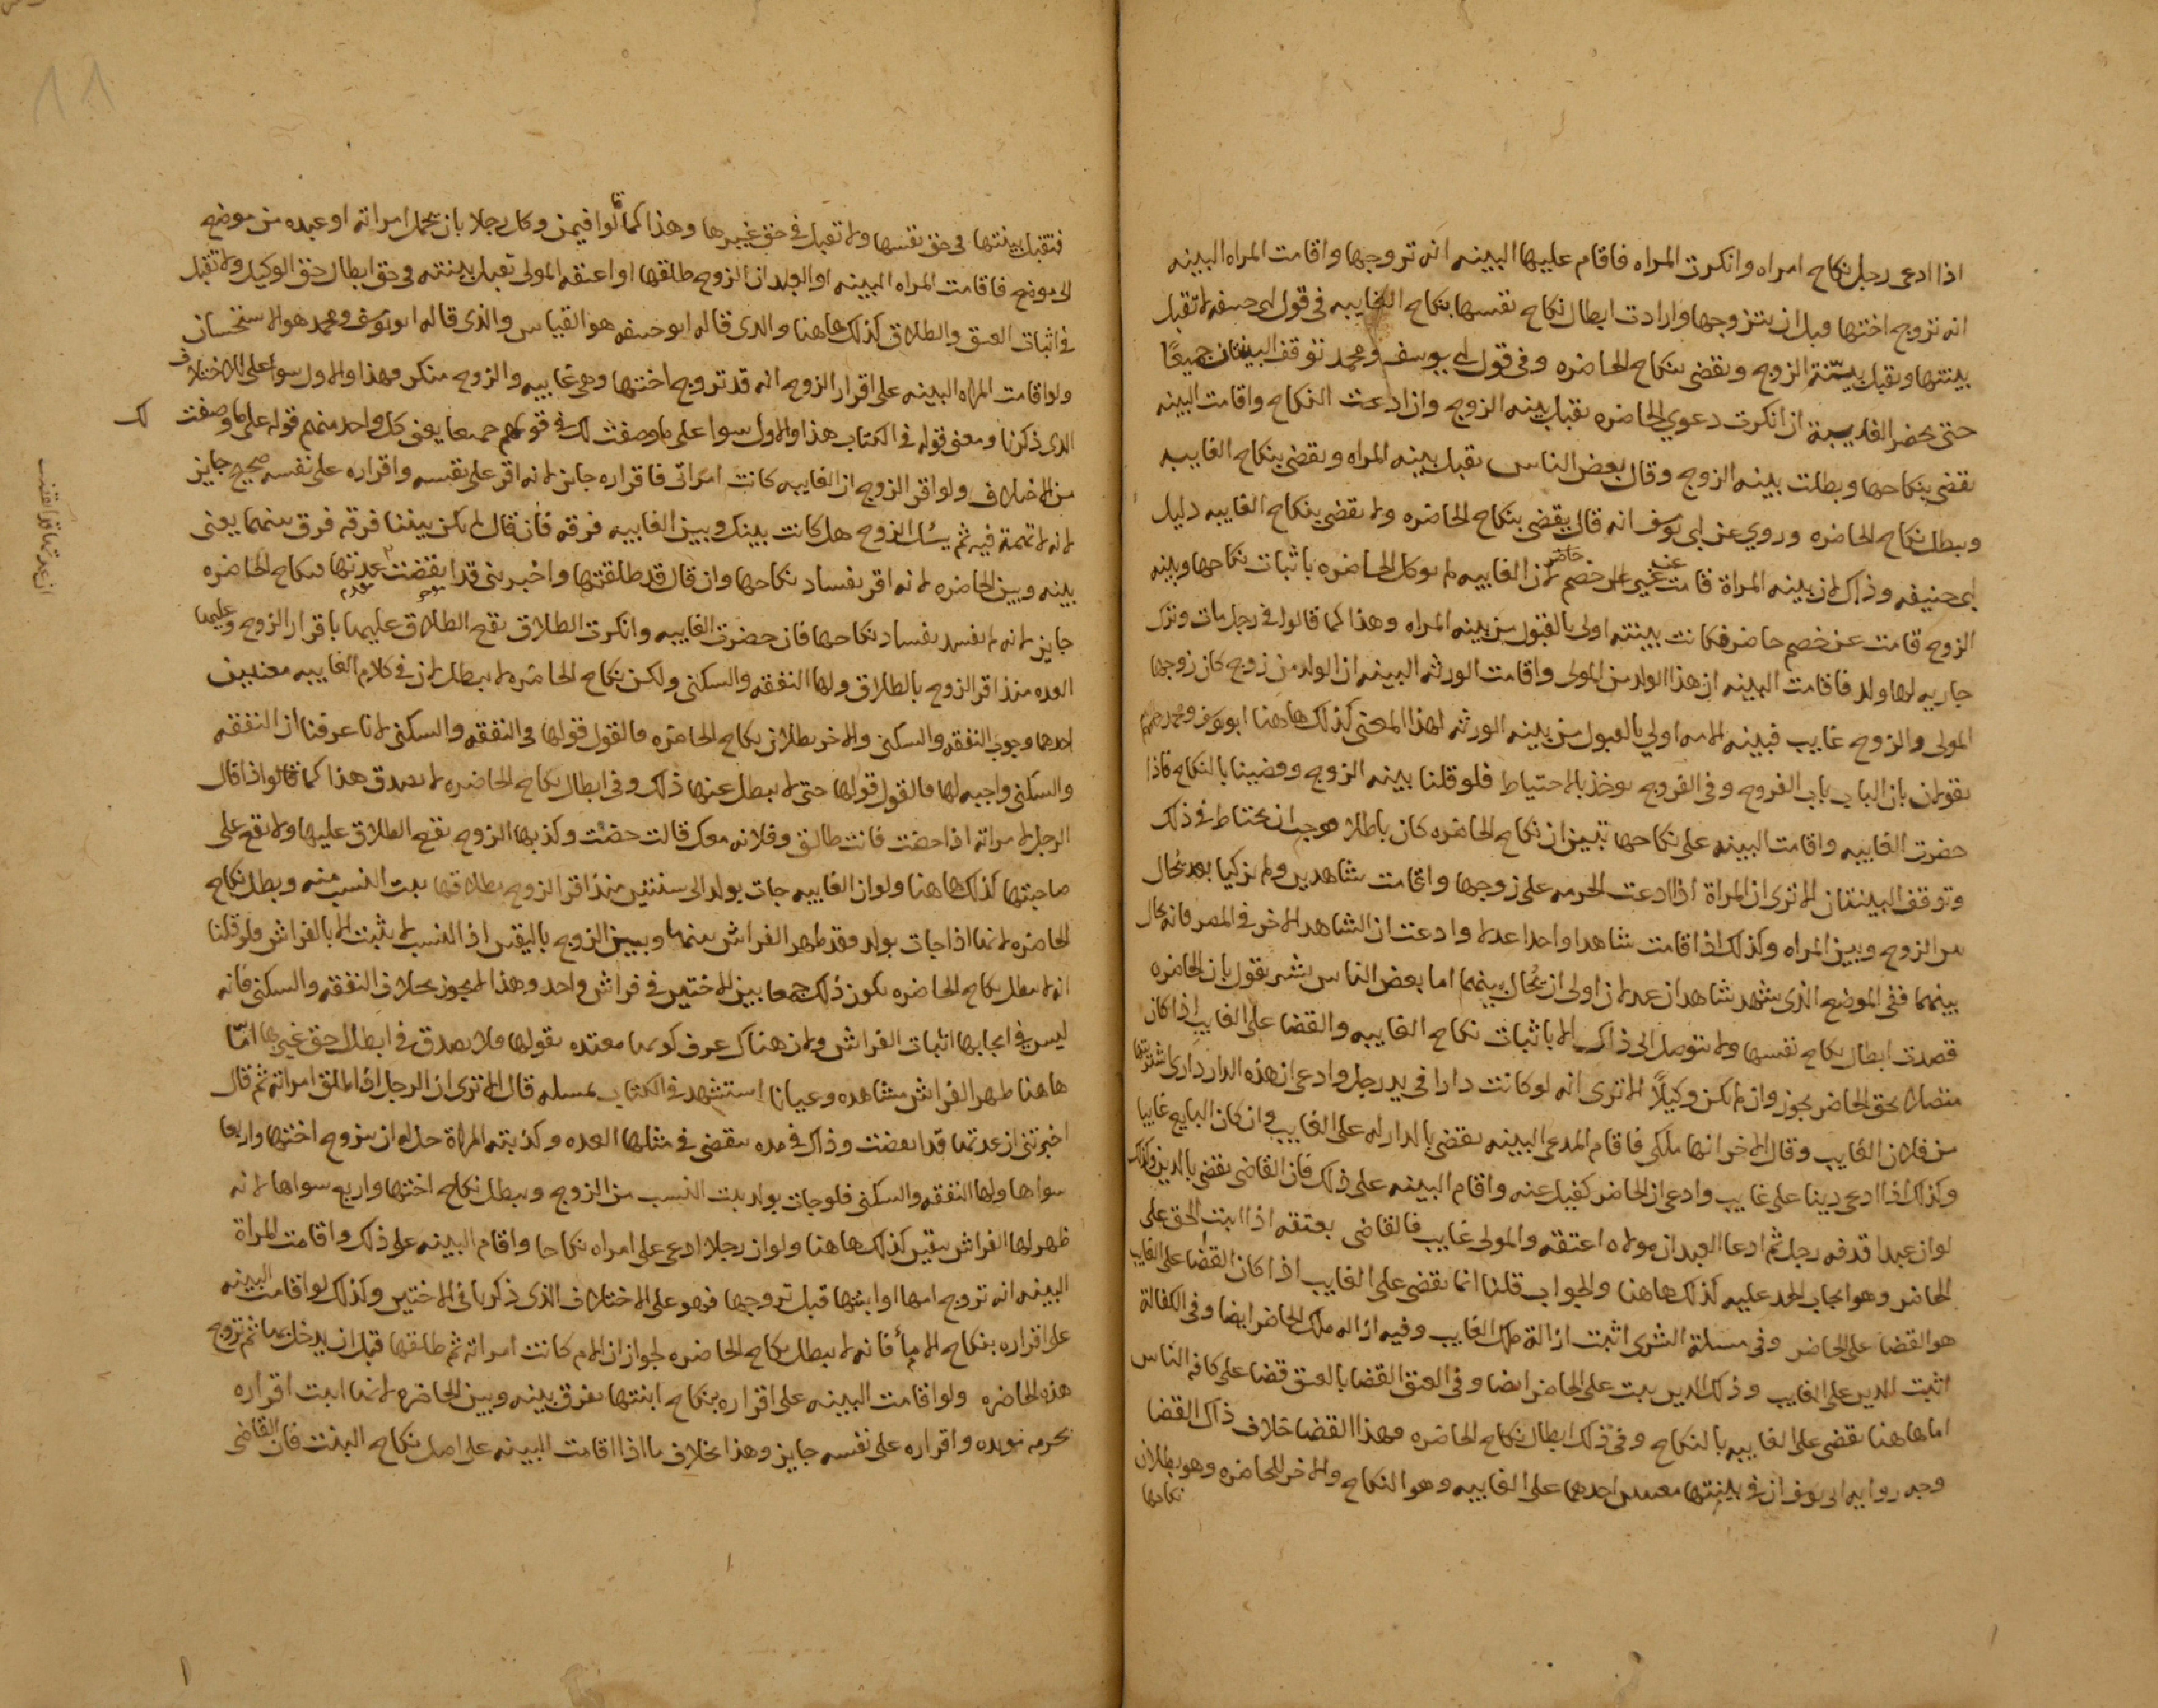 اذا ادعى رجل نكاح امراه وانكرت المراه فاقام عليها البينه انه تزوجها واقامت المراه البينه
انه تزوج اختها قبل ان يتزوجها وارادت ابطال نكاح نفسها بنكاح الغايبه فى قول ابى حنيفه لا تقبل
بينتها وتقبل بينة الزوج ويقضى بنكاح الحاضره وفى قول ابى يوسف ومحمد توقف البينتان جميعًا
حتى يحضر الغايبة ان انكرت دعوى الحاضره تقبل بينه الزوج وان ادعت النكاح واقامت البينه
يقضى بنكاحها وبطلت بينه الزوج وقال بعض الناس تقبل بينه المراه ويقضى بنكاح الغايبه
ويبطل نكاح الحاضره وروي عن ابى يوسف انه قال يقضى بنكاح الحاضره ولا يقضى بنكاح الغايبه دليل
ابى حنيفه وذلك لان بينه المراة قامت عن غير خصم حاضر لان الغايبه لم توكل الحاضره باثبات نكاحها وبينه
الزوج قامت عن خصم حاضر فكانت بينته اولى بالقبول من بينه المراه وهذا كما قالوا فى رجل مات وترك
جاريه لها ولد فاقامت البينه ان هذا الولد من المولى واقامت الورثه البينه ان الولد من زوج كان زوجها
المولى والزوج غايب فبينه الامه اولي بالقبول من بينه الورثه لهذا المعنى كذلك هاهنا ابو يوسف ومحمد رحمهم
يقولان بان الباب باب الفروج وفى الفروج يوخذ بالاحتياط فلو قلنا بينه الزوج وقضينا بالنكاح فاذا
حضرت الغايبه واقامت البينه على نكاحها تبين ان نكاح الحاضره كان باطلا فوجب ان يحتاط فى ذلك
وتوقف البينتان الا ترى ان المراة اذا ادعت الحرمه على زوجها واقامت شاهدين ولم يزكيا بعد يحال
بين الزوج وبين المراه وكذلك اذا اقامت شاهدا واحدا عدلا وادعت ان الشاهد الاخر فى المصر فانه يحال
بينهما ففى الموضع الذى شهد شاهدان عدلان اولى ان يُحال بينهما اما بعض الناس بشر يقول بان الحاضره
قصدت ابطال نكاح نفسها ولا تتوصل الى ذلك الا باثبات نكاح الغايبه والقضا على الغايب اذا كان
متصلا بحق الحاضر يجوز وان لم يكن وكيلًا الا ترى انه لو كانت دارا فى يد رجل وادعى ان هذه الدار دارى اشتريتها
من فلان الغايب وقال الاخر انها ملكى فاقام المدعى البينه يقضى بالدار له على الغايب وان كان البايع غايبا
وكذلك اذا ادعى دينا على غايب وادعى ان الحاضر كفيل عنه واقام البينه على ذلك فان القاضى يقضى بالدين وكذلك
لو ان عبدا قدفه رجل ثم ادعا العبد ان مولاه اعتقه والمولى غايب فالقاضى يعتقه اذا اثبت الحق على
الحاضر وهو ايجاب الحد عليه كذلك هاهنا والجواب قلنا انما يقضى على الغايب اذا كان القضا على الغايب
هو القضا على الحاضر وفى مسئلة الشرى اثبت ازالة ملك الغايب وفيه ازاله ملك الحاضر ايضا وفى الكفالة
اثبت الدين على الغايب وذلك الدين يثبت على الحاضر ايضا وفى العتق القضا بالعتق قضا على كافه الناس
اما هاهنا يقضى على الغايبه بالنكاح وفى ذلك ابطال نكاح الحاضره وهذا القضا خلاف ذلك القضا
وجه روايه ابى يوسف ان فى بينتها معنيين احدهما على الغايبه وهو النكاح والاخر للحاضره وهو بطلان
نكاحها
فتقبل بينتها فى حق نفسها ولا تقبل فى حق غيرها وهذا كما قالوا فيمن وكل رجلا بان يحمل امراته او عبده من موضع
الى موضع فاقامت المراه البينه او العبد ان الزوج طلقها او اعتقه المولى تقبل بينته فى حق ابطال حق الوكيل ولا تقبل
فى اثبات العتق والطلاق كذلك هاهنا والذى قاله ابو حنيفه هو القياس والذى قاله ابو يوسف ومحمد هو الاستحسان
ولو اقامت المراه البينه على اقرار الزوج انه قد تزوج اختها وهى غايبه والزوج منكر فهذا والاول سوا على الاختلاف
الذى ذكرنا ومعنى قوله فى الكتاب هذا والاول سوا على ما وصفت لك فى قولهم جميعا يعنى كل واحد منهم قوله على ما وصفت لك
من الاختلاف ولو اقر الزوج ان الغايبه كانت امراتى فاقراره جايز لانه اقر على نفسه واقراره على نفسه صحيح جايز
لانه لا تهمة فيه ثم يسُل الزوج هل كانت بينك وبين الغايبه فرقه فان قال لم تكن بيننا فرقه فرق بينهما يعنى
بينه وبين الحاضره لانه اقر بفساد نكاحها وان قال قد طلقتها واخبرتنى قد انقضت عدتها فنكاح الحاضره
جايز لانه لم نفسد بفساد نكاحها فان حضرت الغايبه وانكرت الطلاق يقع الطلاق عليها باقرار الزوج وعليها
العده منذ اقر الزوج بالطلاق ولها النفقه والسكنى ولكن نكاح الحاضره لا يبطل لان فى كلام الغايبه معنيين
احدهما وجوب النفقه والسكنى والاخر بطلان نكاح الحاضره فالقول قولها فى النفقه والسكنى لانا عرفنا ان النفقه
والسكنى واجبه لها فالقول قولها حتى لا يبطل عنها ذلك وفى ابطال نكاح الحاضره لا يصدق هذا كما قالوا اذا قال
الرجل لامراته اذا حضت فانت طالق وفلانه معك قالت حضت وكذبها الزوج يقع الطلاق عليها ولا يقع على
صاحبتها كذلك هاهنا ولو ان الغايبه جات بولد الى سنتين منذ اقر الزوج بطلاقها يثبت النسب منه وبطل نكاح
الحاضره لانها اذا جات بولد فقد ظهر الفراش بينها وبين الزوج باليقين اذ النسب لا يثبت الا بالفراش ولو قلنا
انه لا يبطل نكاح الحاضره يكون ذلك جمعا بين الاختين فى فراش واحد وهذا لا يجوز بخلاف النفقه والسكنى فانه
ليس فى ايجابها اثبات الفراش ولان هناك عرف كونها معتده بقولها فلا يصدق فى ابطال حق غيرها امّا
هاهنا ظهر الفراش مشاهده وعيانا استشهد فى الكتاب بمسله قال الا ترى ان الرجل اذا طلق امراته ثم قال
اخبرتنى ان عدتها قد انقضت وذلك فى مده تنقضى فى مثلها العده وكذبته المراة حل له ان يتزوج اختها واربعا
سواها ولها النفقه والسكنى فلو جات بولد يثبت النسب من الزوج ويبطل نكاح اختها واربع سواها لانه
ظهر لها الفراش بيقين كذلك هاهنا ولو ان رجلا ادعى على امراه نكاحا واقام البينه على ذلك واقامت المراة
البينه انه تزوج امها او ابنتها قبل تزوجها فهو على الاختلاف الذى ذكرنا فى الاختين وكذلك لو اقامت البينه
على اقراره بنكاح الام فانه لا يبطل نكاح الحاضره لجواز ان الام كانت امراته ثم طلقها قبل ان يدخل بها ثم تزوج
هذه الحاضره ولو اقامت البينه على اقراره بنكاح ابنتها يفرق بينه وبين الحاضره لانها اثبت اقراره
بحرمه موبده واقراره على نفسه جايز وهذا بخلاف ما اذا اقامت البينه على اصل نكاح البنت فان القاضى
١١